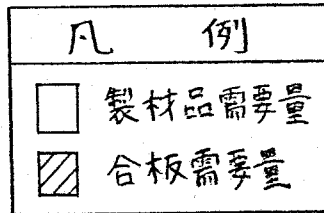 凡 例
製材品需要量
合板需要量